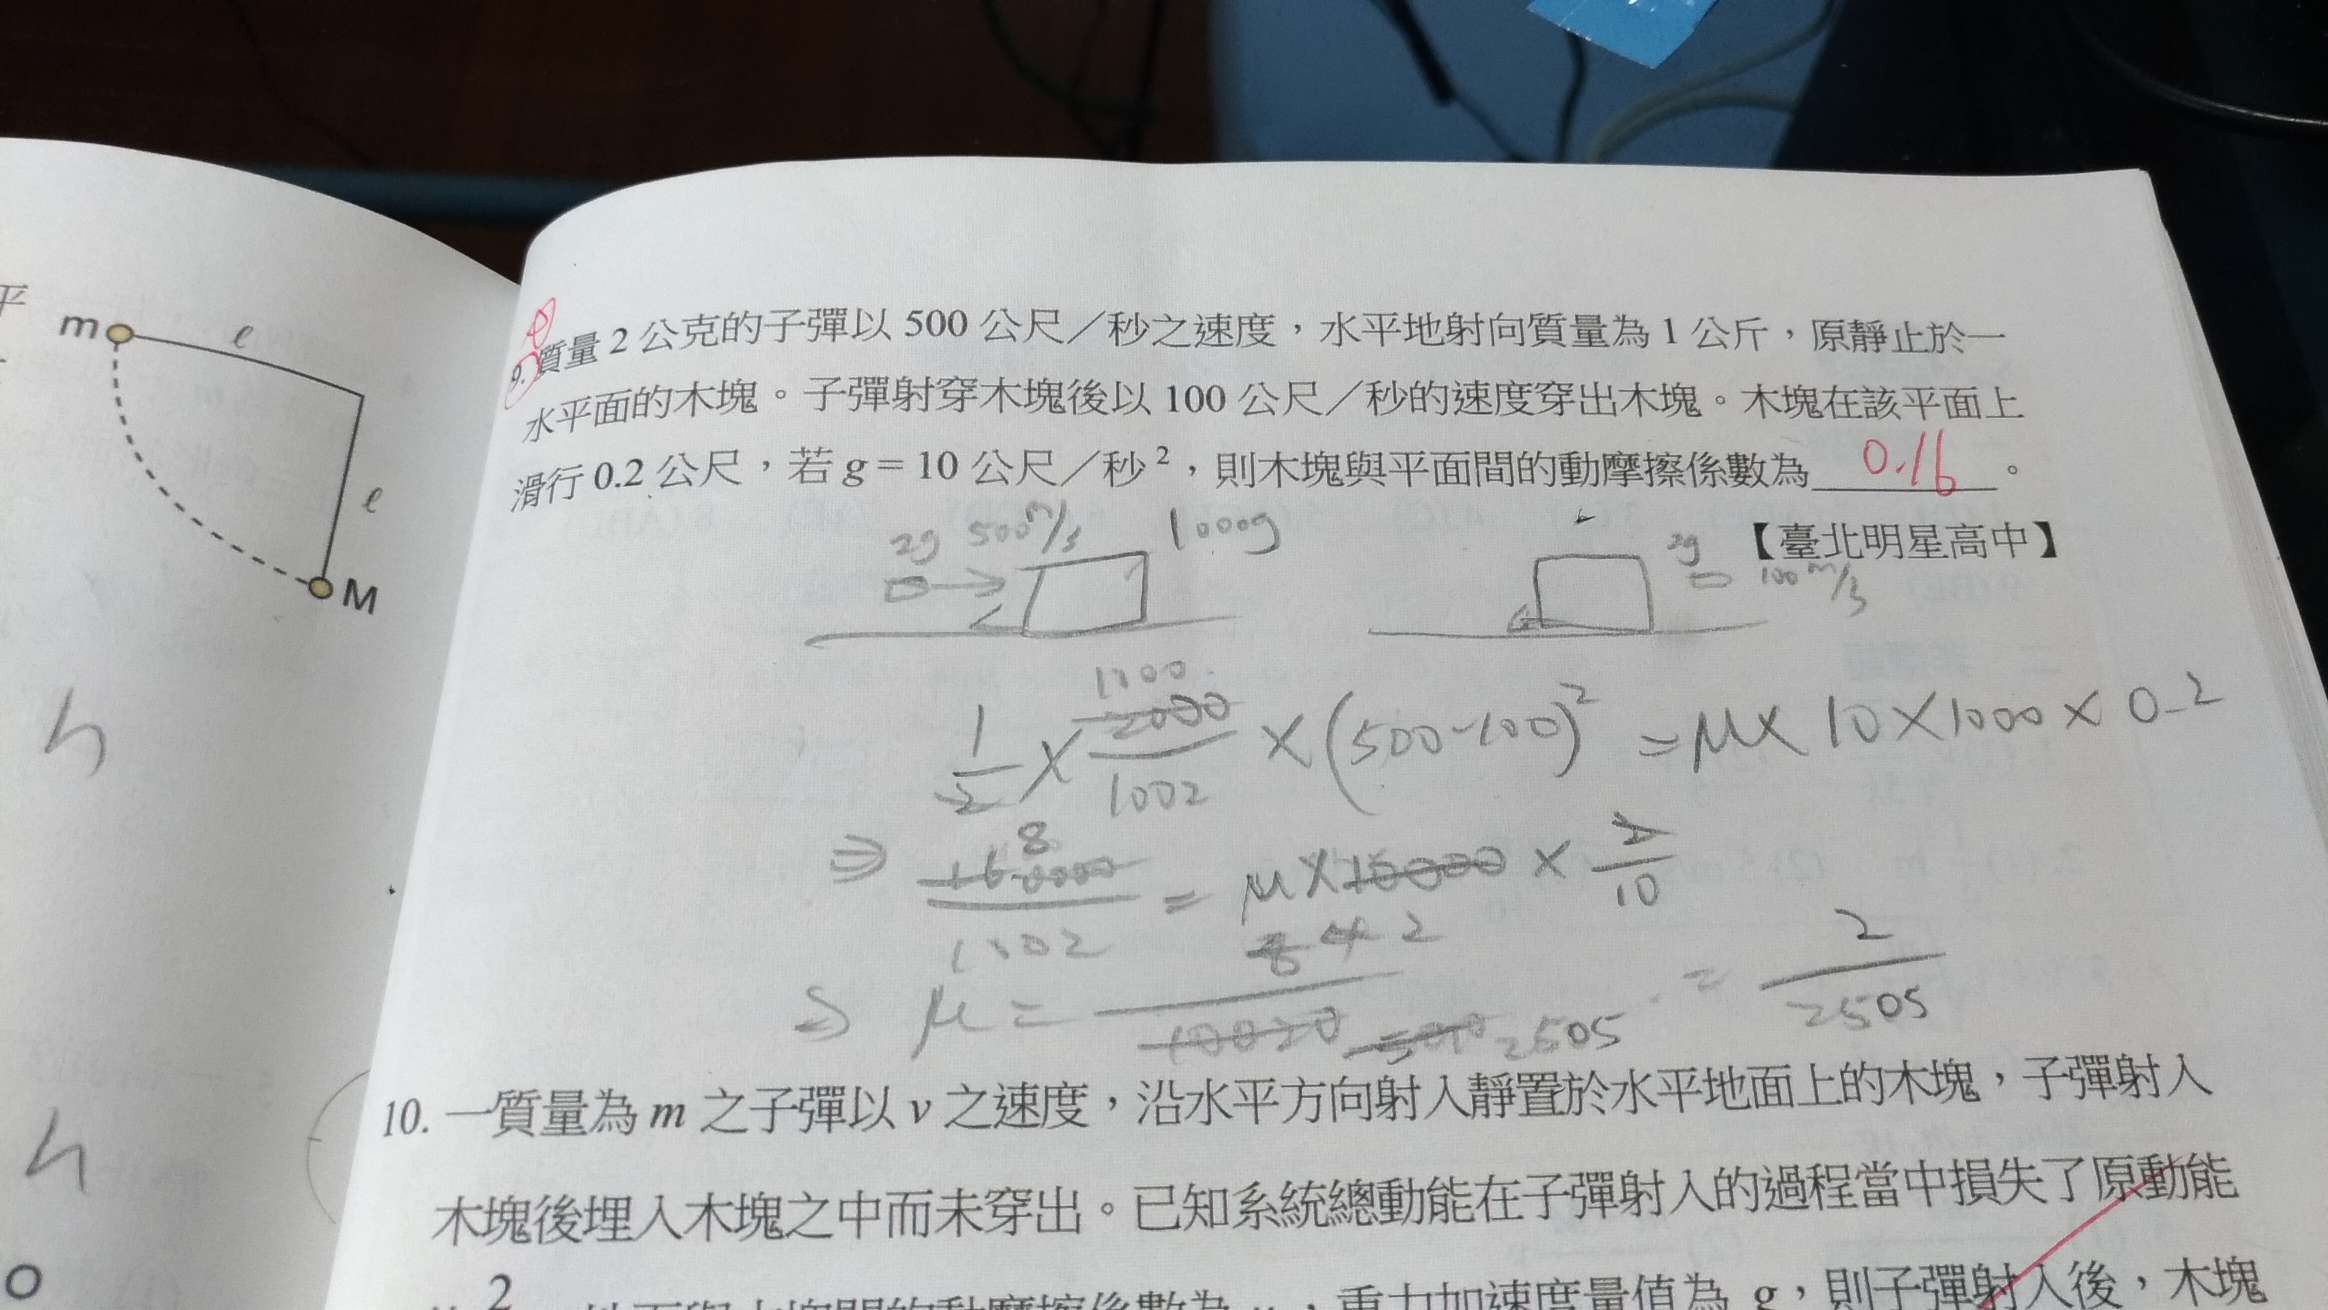 平
m ℓ
ℓ
M
h
h
O
9. 質量 2 公克的子彈以 500 公尺／秒之速度，水平地射向質量為 1 公斤，原靜止於一
水平面的木塊。子彈射穿木塊後以 100 公尺／秒的速度穿出木塊。木塊在該平面上
滑行 0.2 公尺，若 g = 10 公尺／秒²，則木塊與平面間的動摩擦係數為 0.16 。
【臺北明星高中】
2g 500m/s 1000g
2g 100m/s
1/2 × 2000/1002 × (500-100)² = μ × 10 × 1000 × 0.2
1000
⇒ 160000/1002 = μ × 10000 × 2/10
8
⇒ μ = 8 4 2 / 10020 5010 2505 = 2/2505
10. 一質量為 m 之子彈以 v 之速度，沿水平方向射入靜置於水平地面上的木塊，子彈射入
木塊後埋入木塊之中而未穿出。已知系統總動能在子彈射入的過程當中損失了原動能
2 ，地面與木塊間的動摩擦係數為 μ，重力加速度量值為 g，則子彈射入後，木塊